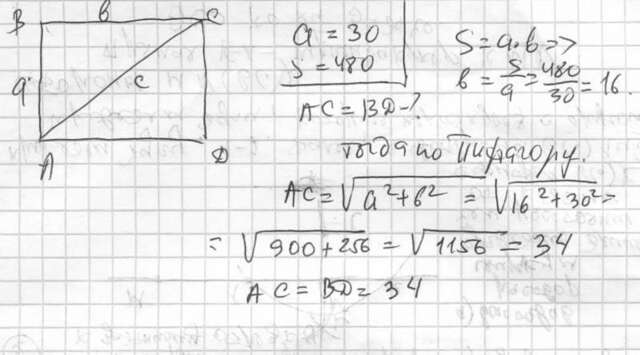 B в C
a c
A D
a = 30
S = 480
AC = BD - ?
S = a·в =>
в = S/a = 480/30 = 16.
тогда по Пифагору.
AC = √a²+в² = √16²+30² =
= √900+256 = √1156 = 34
AC = BD = 34